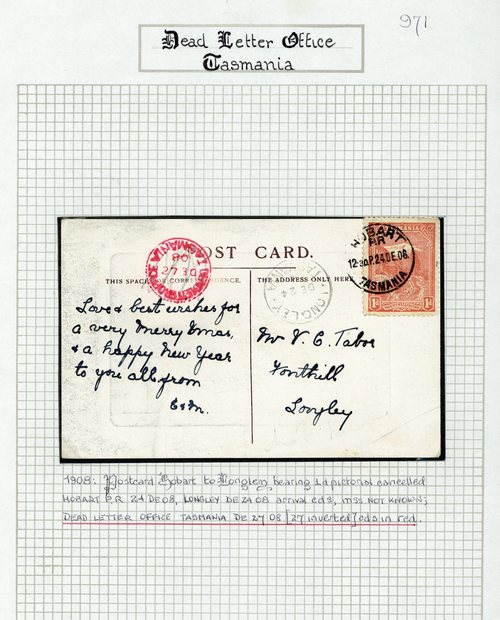 971
Dead Letter Office
Tasmania
POST CARD.
THIS SPACE FOR CORRESPONDENCE.
THE ADDRESS ONLY HERE
HOBART
RR
12-30.P.24.DE.08.
TASMANIA
1d
1d
LONGLEY
DE 24
DE 27
08
Love & best wishes for
a very Merry Xmas,
& a happy New Year
to you all from
Mr V. C. Tabor
Fonthill
Longley
1908: Postcard Hobart to Longley bearing 1d pictorial cancelled
HOBART P.R 24 DE 08, LONGLEY DE 24 08 arrival cds, mss NOT KNOWN;
DEAD LETTER OFFICE TASMANIA DE 27 08 [27 inverted] cds in red.